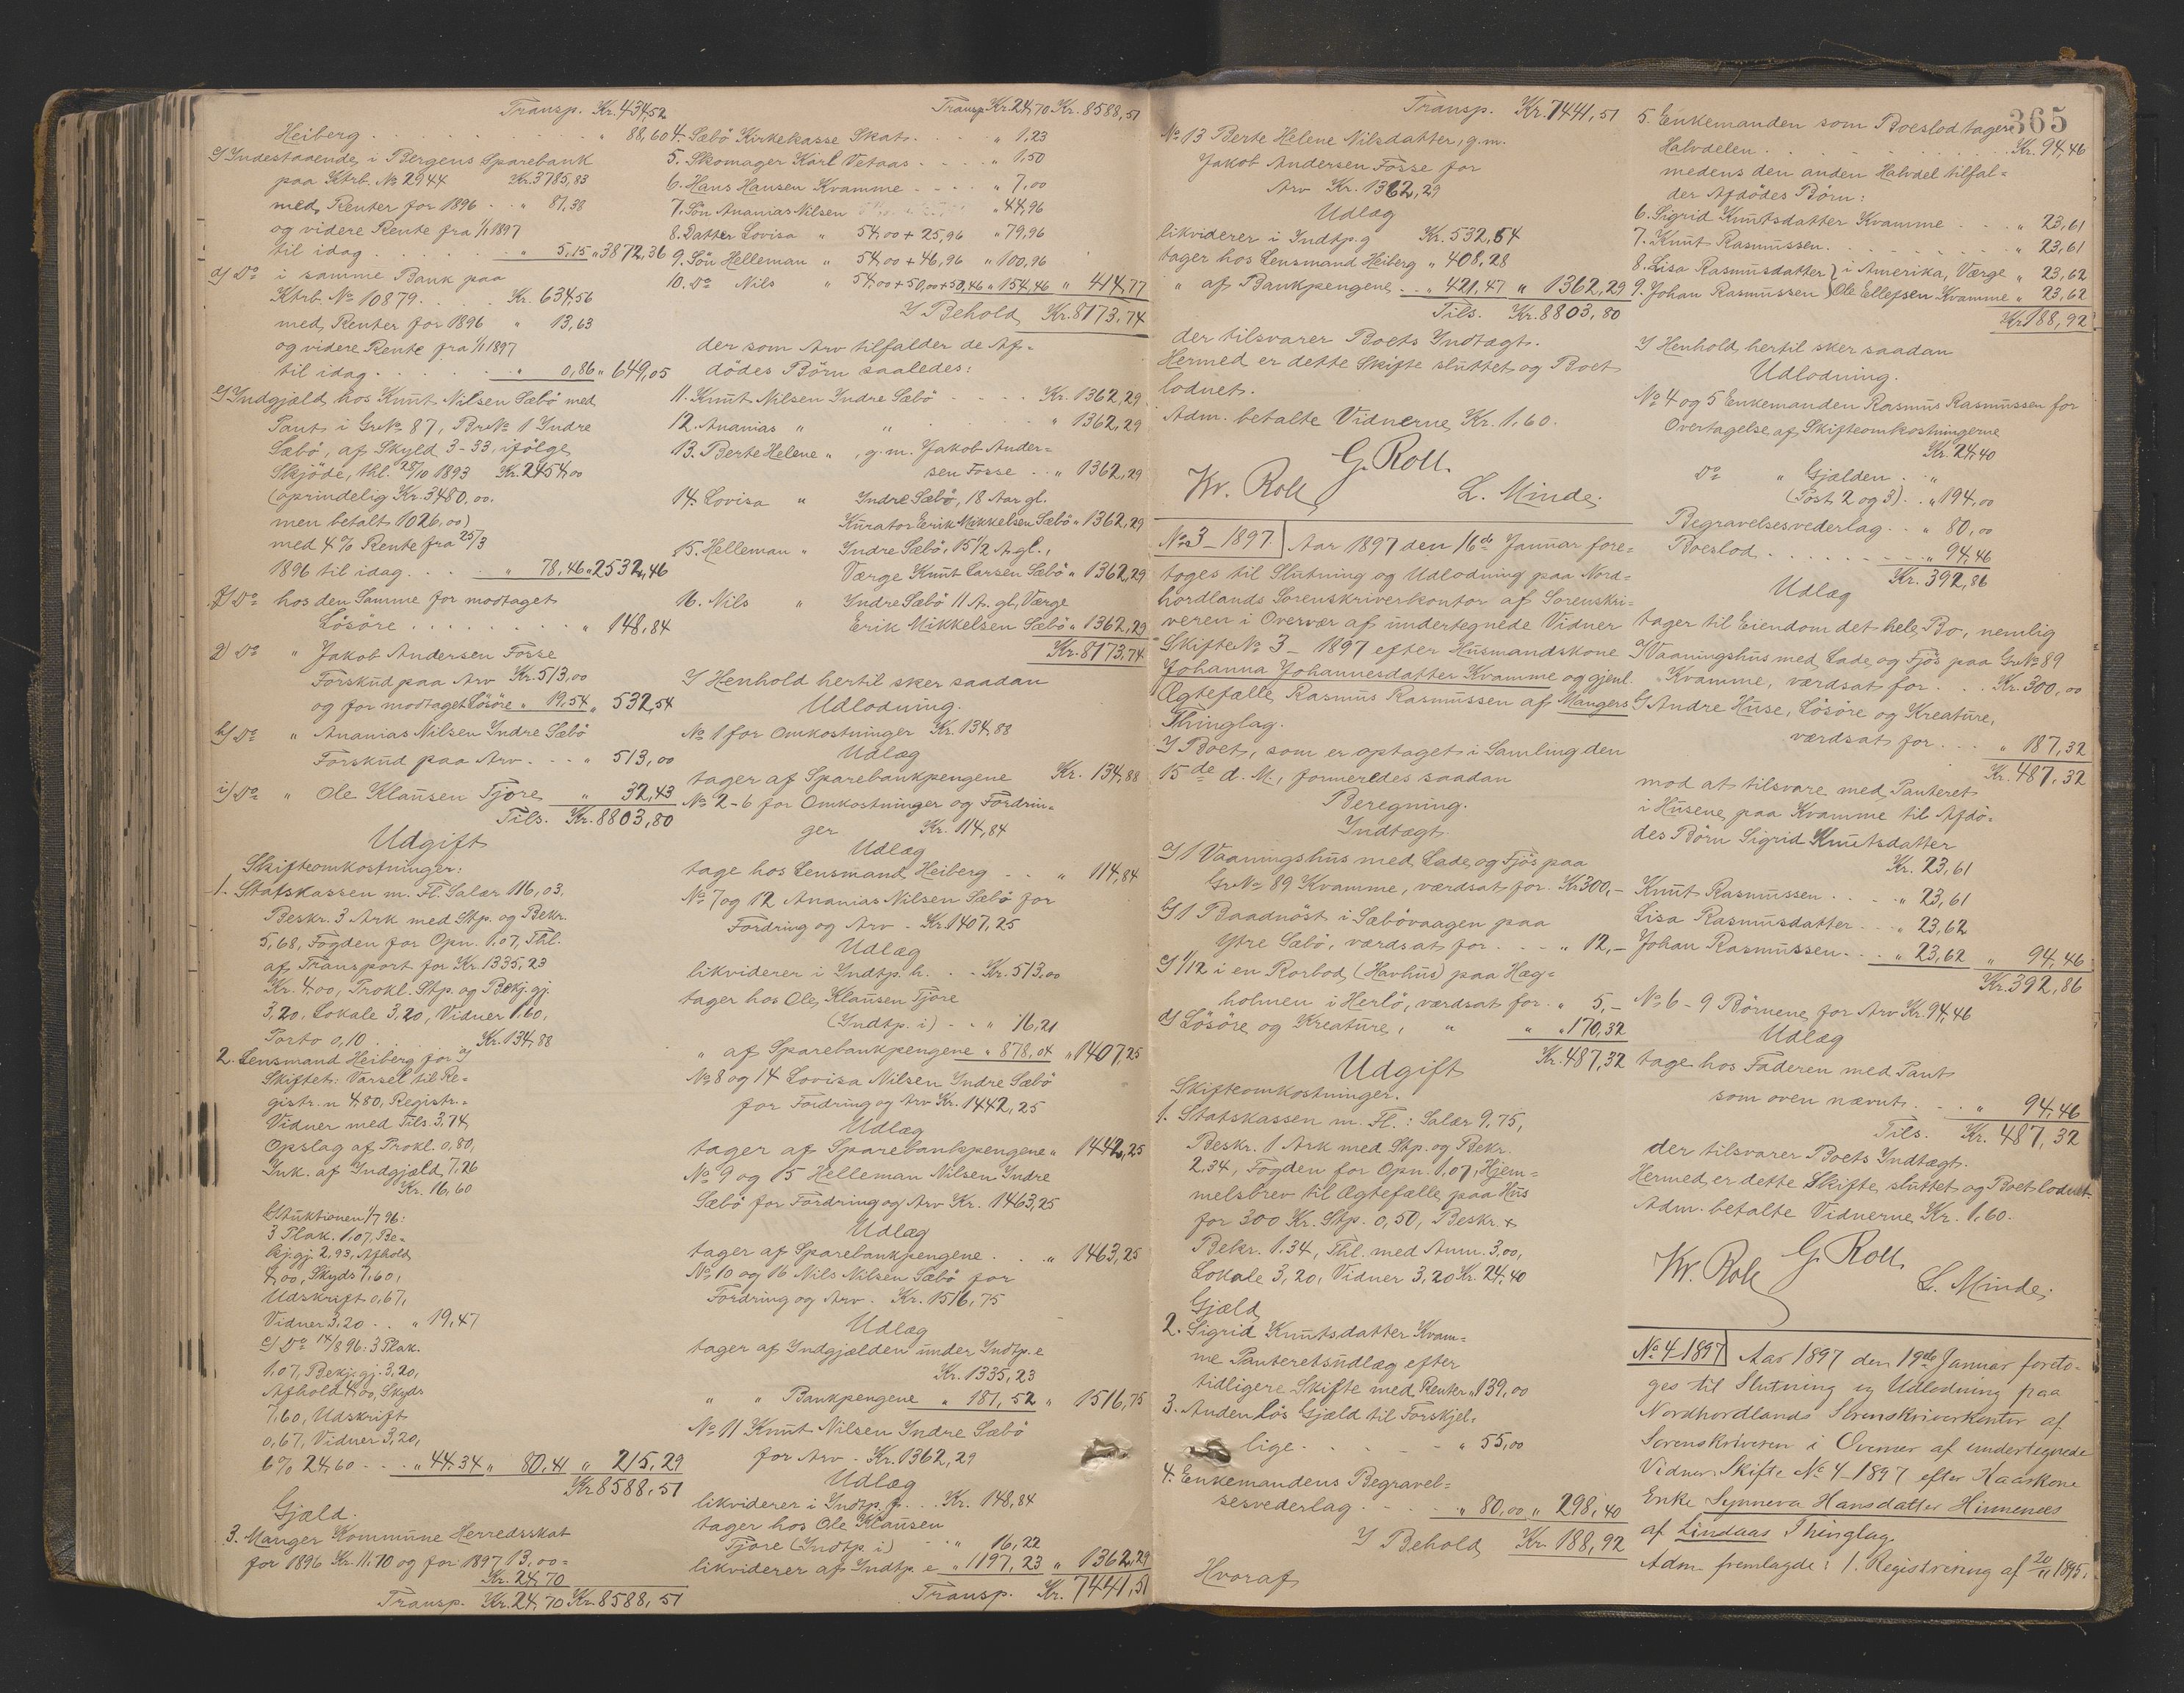 Transp. Kr. 434,52
Heiberg . . . . . . . . " 88,60
c) Indestaaende i Bergens Sparebank
paa Ktrb. No 2944 Kr. 3785,83
med Renter for 1896 . . " 81,38
og videre Rente fra 1/1 1897
til idag . . . . . " 5,15 " 3872,36
d) Do i samme Bank paa
Ktrb. No 10879. . . . Kr. 634,56
med Renter for 1896 " 13,63
og videre Rente fra 1/1 1897
til idag . . . . . . " 0,86 " 649,05
e) Indgjæld hos Knut Nilsen Sæbö med
Pant i Gr No 87, Br No 1 Indre
Sæbö, af Skyld 3-33, ifölge
Skjöde, thl. 28/10 1893 Kr. 2454,00
(oprindelig Kr. 3480,00.
men betalt 1026,00)
med 4% Rente fra 25/3
1896 til idag. . . . " 78,46 " 2532,46
f) Do hos den Samme for modtaget
Lösöre . . . . . . . " 148,84
g) Do " Jakob Andersen Fosse
Forskud paa Arv Kr. 513,00
og for modtaget Lösöre " 19,54 " 532,54
h) Do " Ananias Nilsen Indre Sæbö
Forskud paa Arv . . . " 513,00
i) Do " Ole Klausen Tjore " 32,43
Tils. Kr. 8803,80
Udgift
Skifteomkostninger:
1. Statskassen m. Fl. Salær 116,03.
Beskr. 3 Ark med Stp. og Bekr.
5,68, Fogden for Opn. 1,07, Thl.
af Transport for Kr. 1335,23
Kr. 4,00, Prokl. Stp. og Bekj. gj.
3,20, Lokale 3,20, Vidner 1,60,
Porto 0,10 . . . . Kr. 134,88
2. Lensmand Heiberg for a)
Skiftet: Varsel til Re-
gistr. n 4,80, Registr. -
Vidner med Tils. 3,74,
Opslag af Prokl. 0,80,
Ink. af Indgjæld 7,26
Kr. 16,60
b) Auktionen 1/7 96:
3 Plak. 1,07, Be-
kj. gj. 2,93, Afhold
4,00, Skyds 7,60,
Udskrift 0,67,
Vidner 3,20 . . " 19,47
c) Do 14/8 96: 3 Plak.
1,07, Bekj. gj. 3,20,
Afhold 4,00, Skyds
7,60, Udskrift
0,67, Vidner 3,20,
6% 24,60 . . . " 44,34 " 80,41 " 215,29
Kr. 8588,51
Gjæld.
3. Manger Kommune Herredsskat
for 1896 Kr. 11,70 og for 1897 13,00 =
Kr. 24,70
Transp. Kr. 24,70 Kr. 8588,51
Transp. Kr. 24,70 Kr. 8588,51
4. Sæbö Kirkekasse Skat. . . . " 1,23
5. Skomager Karl Vetaas . . . . " 1,50
6. Hans Hansen Kvamme . . . . " 7,00
7. Sön Ananias Nilsen " 44,96
8. Datter Lovisa " 54,00 + 25,96 " 79,96
9. Sön Helleman " 54,00 + 46,96 " 100,96
10. Do Nils " 54,00 + 50,00 + 50,46 " 154,46 " 414,77
I Behold Kr. 8173,74
der som Arv tilfalder de Af-
dödes Börn saaledes:
11. Knut Nilsen Indre Sæbö . . . . Kr. 1362,29
12. Ananias " " . . . . . " 1362,29
13. Berte Helene " , g. m. Jakob Ander-
sen Fosse . . " 1362,29
14. Lovisa " Indre Sæbö, 18 Aar gl.
Kurator Erik Mikkelsen Sæbö " 1362,29
15. Helleman " Indre Sæbö, 15 1/2 A. gl.,
Værge Knut Larsen Sæbö " 1362,29
16. Nils " Indre Sæbö 11 A. gl, Værge
Erik Mikkelsen Sæbö " 1362,29
Kr. 8173,74
I Henhold hertil sker saadan
Udlodning.
No 1 for Omkostninger Kr. 134,88
Udlæg
tager af Sparebankpengene Kr. 134,88
No 2-6 for Omkostninger og Fordrin-
ger Kr. 114,84
Udlæg
tage hos Lensmand Heiberg . . " 114,84
No 7 og 12 Ananias Nilsen Sæbö for
Fordring og Arv . Kr. 1407,25
Udlæg
likviderer i Indtp. h. . . Kr. 513,00
tager hos Ole Klausen Tjore
(Indtp. i) . . " 16,21
" af Sparebankpengene " 878,04 " 1407,25
No 8 og 14 Lovisa Nilsen Indre Sæbö
for Fordring og Arv Kr. 1442,25
Udlæg
tager af Sparebankpengene " 1442,25
No 9 og 15 Helleman Nilsen Indre
Sæbö for Fordring og Arv Kr. 1463,25
Udlæg
tager af Sparebankpengene . . " 1463,25
No 10 og 16 Nils Nilsen Sæbö for
Fordring og Arv . Kr. 1516,75
Udlæg
tager af Indgjælden under Indtp. e
Kr. 1335,23
" " Bankpengene " 181,52 " 1516,75
No 11 Knut Nilsen Indre Sæbö
for Arv . Kr. 1362,29
Udlæg
likviderer i Indtp. f. . . Kr. 148,84
tager hos Ole Klausen
Tjore (Indtp. i) . . " 16,22
likviderer af Indtp. e " 1197,23 " 1362,29
Transp. Kr. 7441,51
Transp. Kr. 7441,51
No 13 Berte Helene Nilsdatter, g. m.
Jakob Andersen Fosse for
Arv Kr. 1362,29
Udlæg
likviderer i Indtp. g Kr. 532,54
tager hos Lensmand Heiberg " 408,28
" af Bankpengene . . " 421,47 " 1362,29
Tils. Kr. 8803,80
der tilsvarer Boets Indtægt.
Hermed er dette Skifte sluttet og Boet
lodnet.
Adm. betalte Vidnerne Kr. 1,60.
G. Roll.
Kr. Roll L. Minde.
No 3 - 1897 Aar 1897 den 16de Januar fore-
toges til Slutning og Udlodning paa Nord-
hordlands Sorenskriverkontor af Sorenskri-
veren i Overvær af undertegnede Vidner
Skifte No 3 - 1897 efter Husmandskone
Johanna Johannesdatter Kvamme og gjenl.
Ægtefælle Rasmus Rasmussen af Mangers
Thinglag.
I Boet, som er optaget i Samling den
15de d. M., formeredes saadan
Beregning.
Indtægt.
a) 1 Vaaningshus med Lade og Fjös paa
Gr No 89 Kvamme, værdsat for. Kr 300,-
b) 1 Baadnöst i Sæbövaagen paa
Ytre Sæbö, værdsat for. . . . " 12,-
c) 1/12 i en Rorbod (Havhus) paa Hæg-
holmen i Herlö, værdsat for . " 5,-
d) Lösöre og Kreature, " " " 170,32
Kr. 487,32
Udgift
Skifteomkostninger.
1. Statskassen m. Fl.: Salær 9,75,
Beskr. 1 Ark med Stp. og Bekr.
2,34, Fogden for Opn. 1,07, Hjem-
melsbrev til Ægtefælle paa Hus
for 300 Kr. Stp. 0,50, Beskr. +
Bekr. 1,34, Thl. med Anm. 3,00,
Lokale 3,20, Vidner 3,20 Kr. 24,40
Gjæld
2. Sigrid Knutsdatter Kvam-
me Panteretsudlæg efter
tidligere Skifte med Renter " 139,00
3. Anden lös Gjæld til Forskjel-
lige . . . . . " 55,00
4. Enkemandens Begravel-
sesvederlag . . . . " 80,00 " 298,40
I Behold Kr. 188,92
Hvoraf
365
5. Enkemanden som Boeslod tager
Halvdelen . . . . . . . . Kr. 94,46
medens den anden Halvdel tilfal-
der Afdödes Börn:
6. Sigrid Knutsdatter Kvamme . . . " 23,61
7. Knut Rasmussen . . . . . . " 23,61
8. Lisa Rasmusdatter } i Amerika, Værge " 23,62
9. Johan Rasmussen } Ole Ellefsen Kvamme " 23,62
Kr. 188,92
I Henhold hertil sker saadan
Udlodning.
No 4 og 5 Enkemanden Rasmus Rasmussen for
Overtagelse af Skifteomkostningerne
Kr. 24,40
Do " Gjælden . "
(Post 2 og 3) . . " 194,00
Begravelsesvederlag . . " 80,00
Boeslod . . . . . . . " 94,46
Kr. 392,86
Udlæg
tager til Eiendom det hele Bo, nemlig
a) Vaaningshus med Lade og Fjös paa Gr No 89
Kvamme, værdsat for . . . Kr. 300,00
b) Andre Huse, Lösöre og Kreature,
værdsat for . . . " 187,32
Kr. 487,32
mod at tilsvare med Panteret
i Husene paa Kvamme til Afdö-
des Börn Sigrid Knutsdatter
Kr. 23,61
Knut Rasmussen . . . . " 23,61
Lisa Rasmusdatter . . . " 23,62
Johan Rasmussen . . . " 23,62 " 94,46
Kr. 392,86
No 6 - 9 Börnene for Arv Kr. 94,46
Udlæg
tage hos Faderen med Pant
som oven nævnt . . . " 94,46
Tils. Kr. 487,32
der tilsvarer Boets Indtægt.
Hermed er dette Skifte sluttet og Boet lodnet.
Adm. betalte Vidnerne Kr. 1,60.
G. Roll.
Kr. Roll L. Minde.
No 4-1897 Aar 1897 den 19de Januar foreto-
ges til Slutning og Udlodning paa
Nordhordlands Sorenskriverkontor af
Sorenskriveren i Overvær af undertegnede
Vidner Skifte No 4-1897 efter Kaarkone
Enke Synneva Hansdatter Hinnenæs
af Lindaas Thinglag.
Adm. fremlagde: 1. Registrering af 20/11 1895.